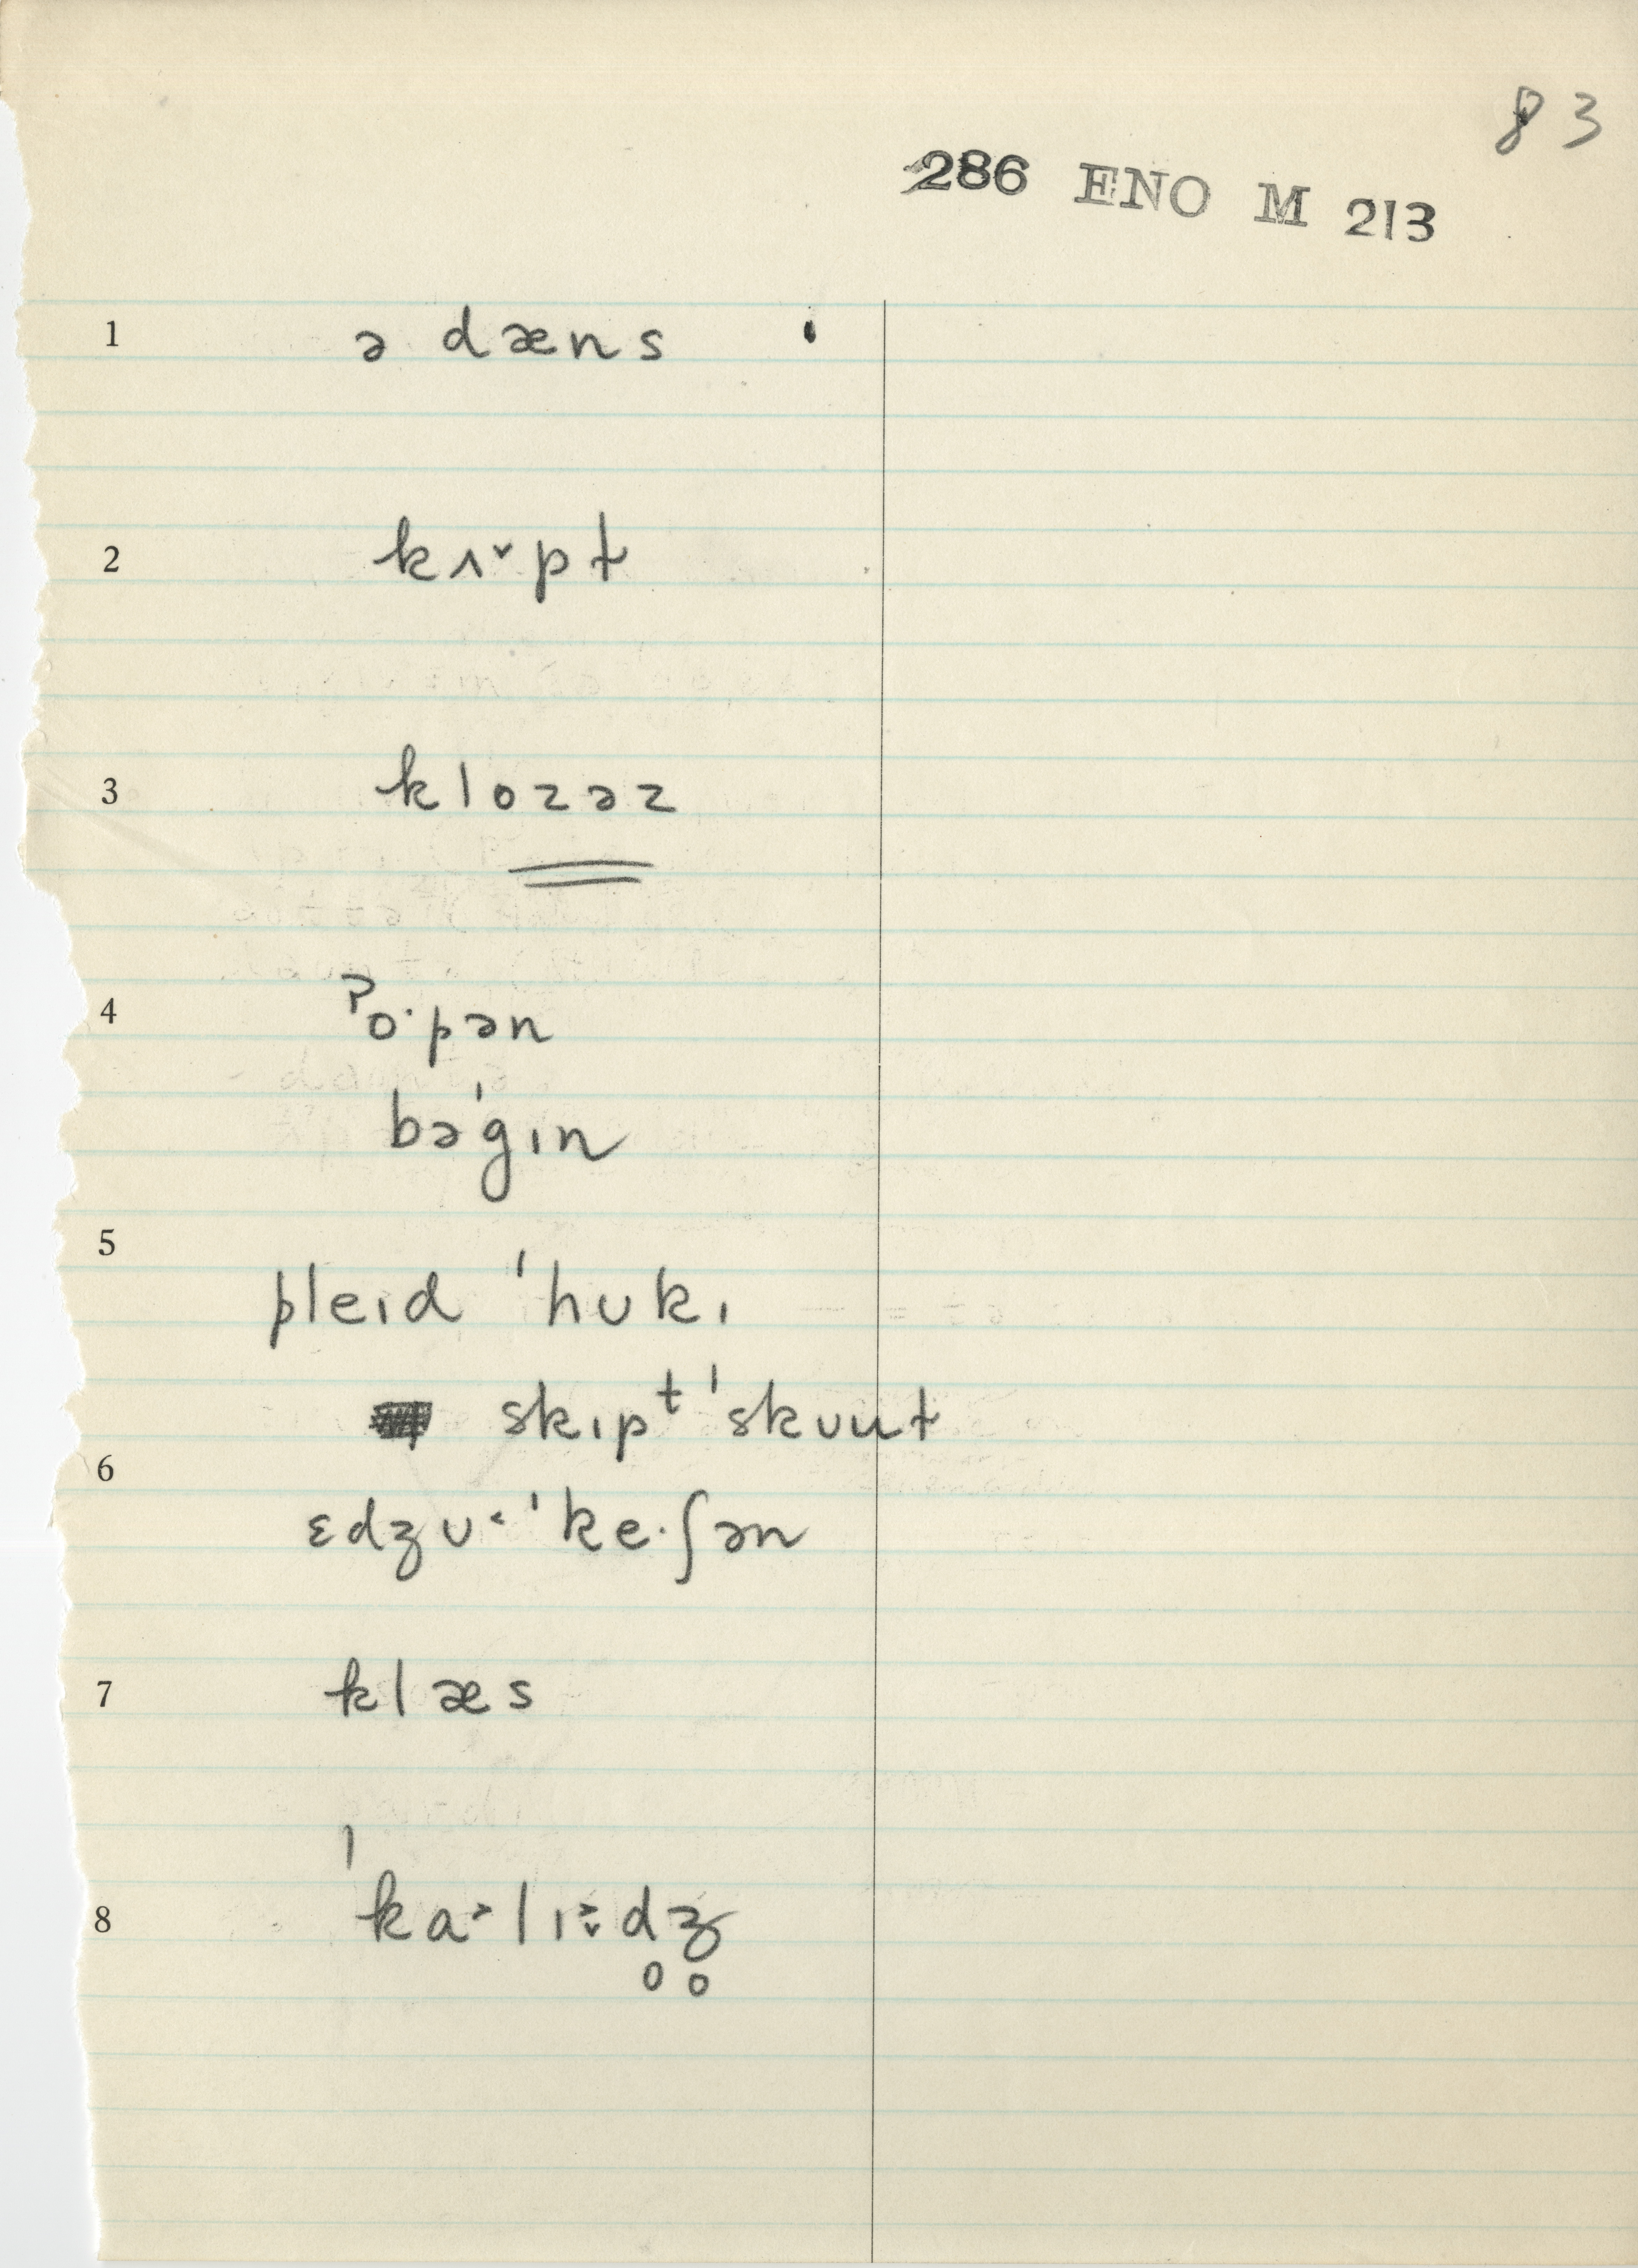 83
286 ENO M 213
1 ə dæns
2 kʌ˅pt
3 klozəz
4 ˀo·pən
bə'gɪn
5
pleɪd 'hʊkɪ
skɪpᵗ 'skuut
6
ɛdʒʊ˂ 'ke·ʃən
7 klæs
8 'ka˃lɪ˃̬d̥ʒ̥